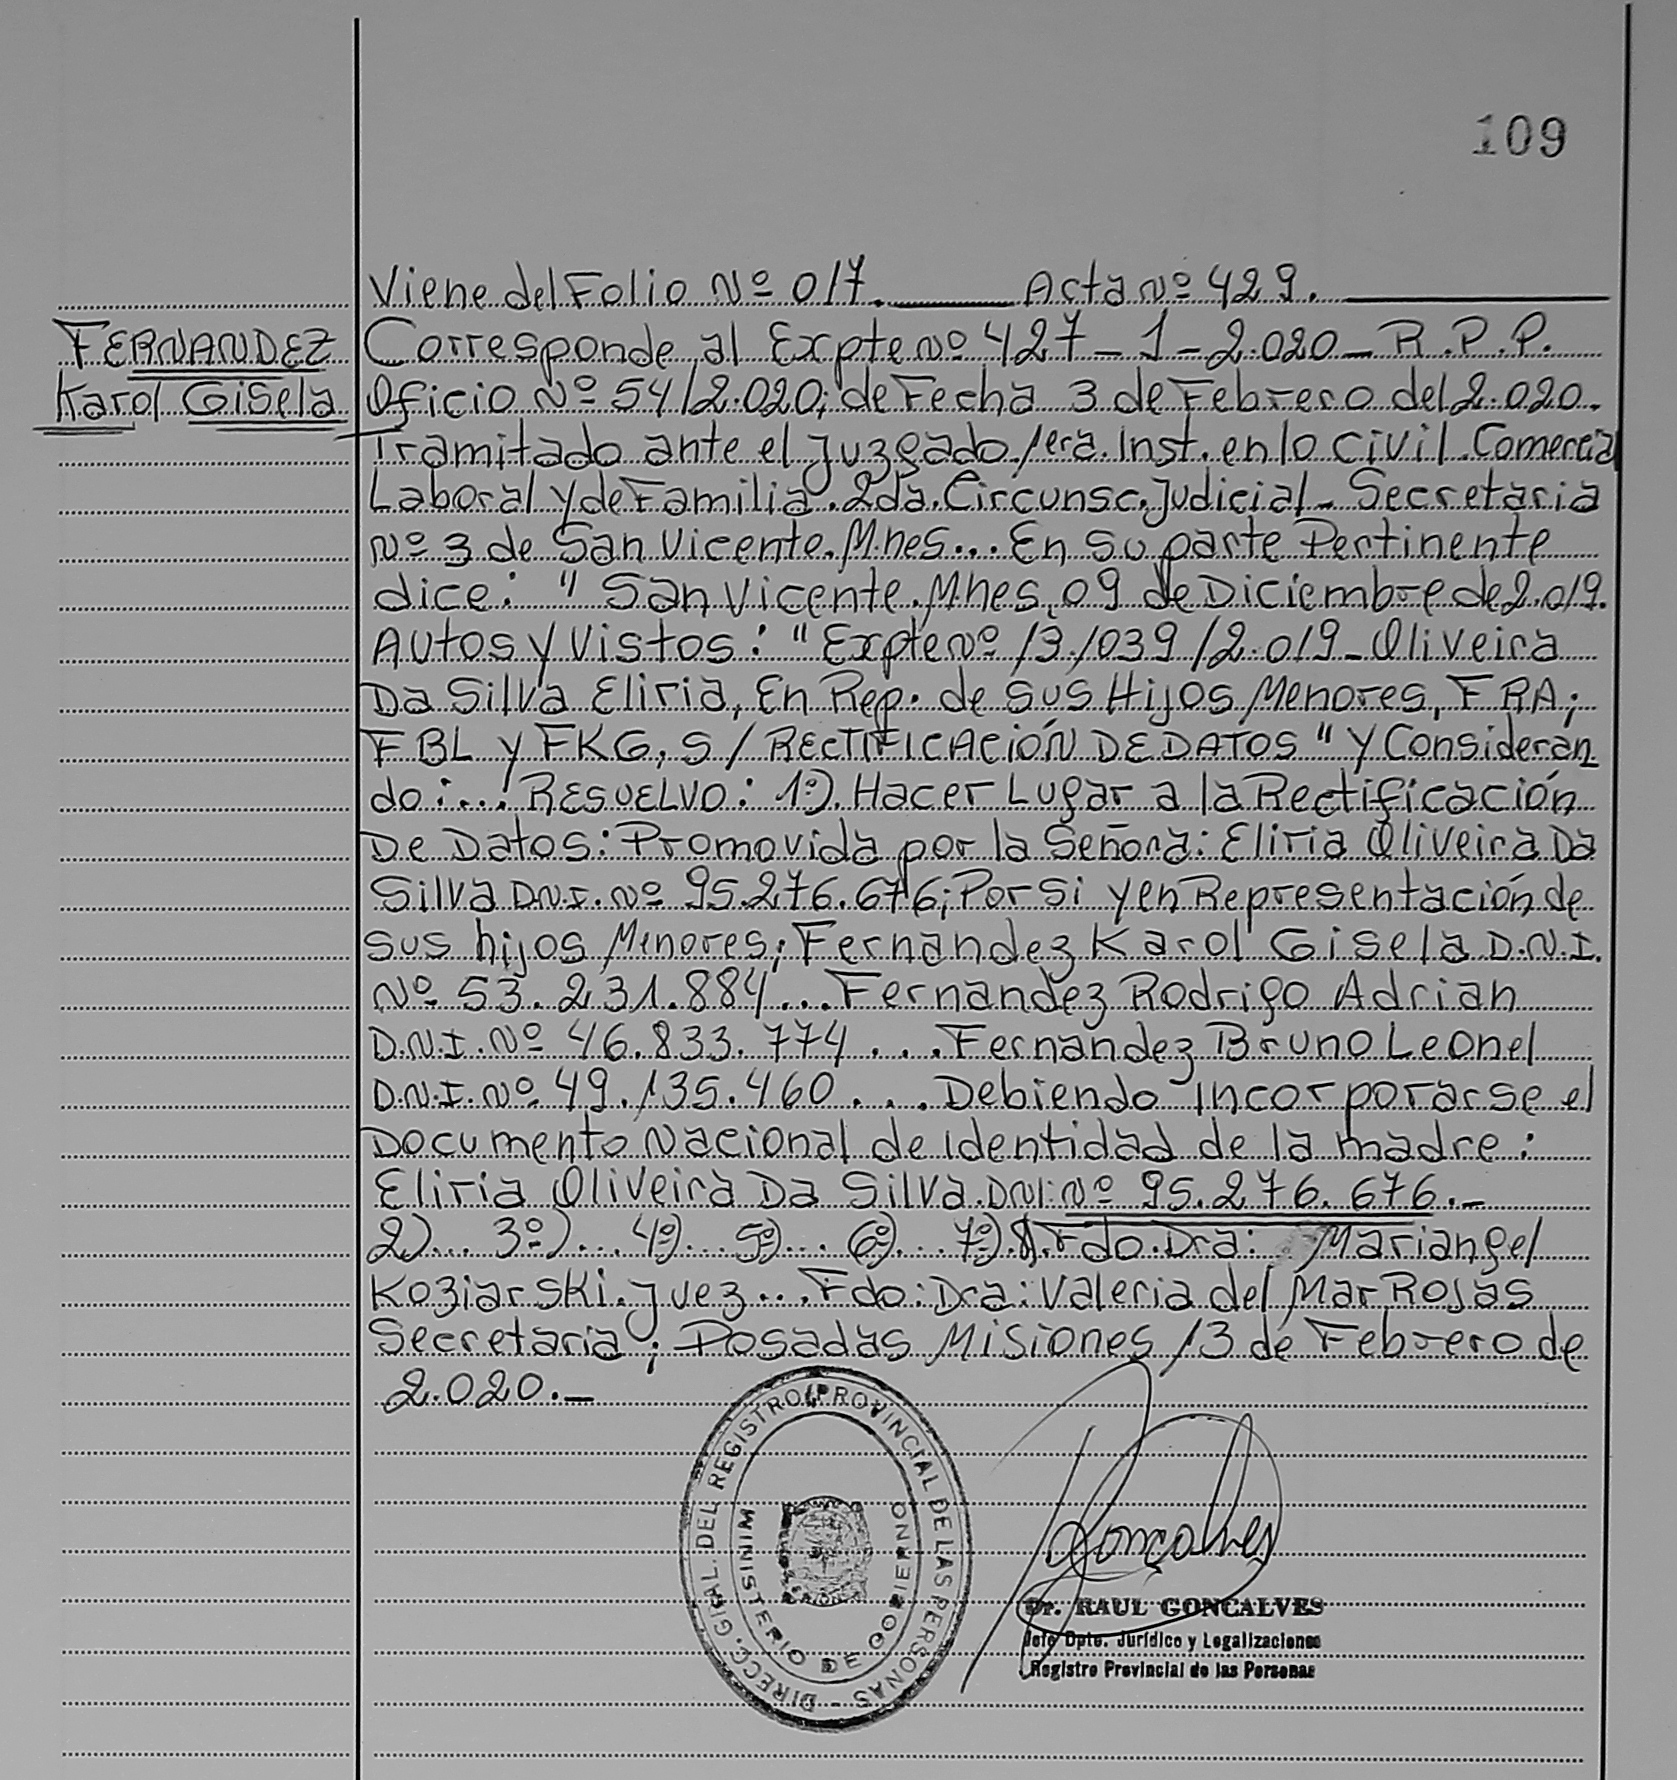 109
Viene del Folio Nº 017. Acta Nº 429.
FERNANDEZ
Karol Gisela
Corresponde al Expte Nº 427-1-2.020- R.P.P.
Oficio Nº 54/2.020; de Fecha 3 de Febrero del 2.020.
Tramitado ante el Juzgado 1era. Inst. en lo Civil Comercial
Laboral y de Familia. 2da. Circunsc. Judicial- Secretaria
Nº 3 de San Vicente. Mnes... En su parte Pertinente
dice: "San Vicente. Mnes, 09 de Diciembre de 2.019.
Autos y Vistos: "Expte Nº 13.1039/2.019- Oliveira
Da Silva Eliria, En Rep. de sus Hijos Menores, FRA;
FBL y FKG, S/RECTIFICACIÓN DE DATOS" y Consideran
do:... RESUELVO: 1º). Hacer Lugar a la Rectificación
De Datos: Promovida por la Señora: Eliria Oliveira Da
Silva D.N.I. Nº 95.276.676; Por si y en Representación de
sus hijos Menores; Fernandez Karol Gisela D.N.I.
Nº 53.231.884... Fernandez Rodrigo Adrian
D.N.I. Nº 46.833.774.... Fernandez Bruno Leonel
D.N.I. Nº 49.135.460.... Debiendo incorporarse el
Documento Nacional de identidad de la madre:
Eliria Oliveira Da Silva. DNI: Nº 95.276.676.-
2)... 3º)... 4º)... 5º)... 6º)... 7º). Fdo. Dra: Mariangel
Koziarski. Juez... Fdo: Dra: Valeria del Mar Rojas
Secretaria; Posadas Misiones 13 de Febrero de
2.020.-
DIRECC. GRAL. DEL REGISTRO PROVINCIAL DE LAS PERSONAS -
MINISTERIO DE GOBIERNO
Goncalves
Dr. RAUL GONCALVES
Jefe Dpto. Jurídico y Legalizaciones
Registro Provincial de las Personas